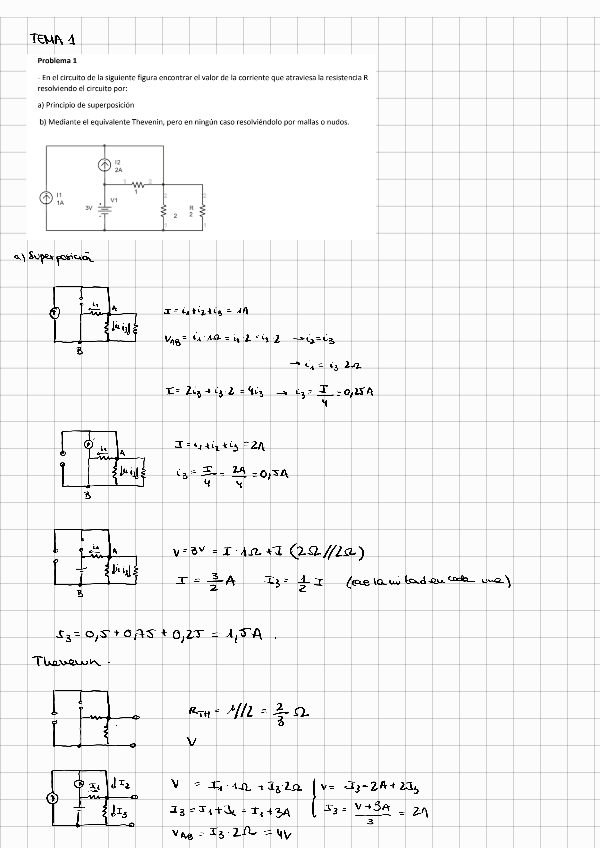 TEMA 1
Problema 1
- En el circuito de la siguiente figura encontrar el valor de la corriente que atraviesa la resistencia R
resolviendo el circuito por:
a) Principio de superposición
b) Mediante el equivalente Thevenin, pero en ningún caso resolviéndolo por mallas o nudos.
I2
2A
1
I1
1A
V1
3V
2
R
2
a) Superposición
i1 A
i2 i3
B
I = i1 + i2 + i3 = 1A
VAB = i1·1Ω = i2·2 = i3·2 → i2=i3
→ i1 = i3 2Ω
I = 2i3 + i3·2 = 4i3 → i3 = I/4 = 0,25A
i1 A
i2 i3
B
I = i1 + i2 + i3 = 2A
i3 = I/4 = 2A/4 = 0,5A
i1 A
i2 i3
B
V = 3V = I·1Ω + I (2Ω//2Ω)
I = 3/2 A I3 = 1/2 I (cae la mitad en cada una)
I3 = 0,5 + 0,75 + 0,25 = 1,5A.
Thevenin.
RTH = 1//2 = 2/3 Ω
V
I1 I2
I3
V = I1·1Ω + I3·2Ω V = I3 - 3A + 2I3
I3 = I1 + I2 = I1 + 3A I3 = V+3A/3 = 2A
VAB = I3·2Ω = 4V